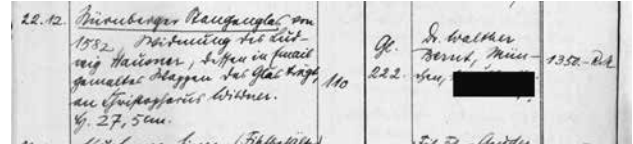 22.12. Nürnberger Stangenglas von
1582 Widmung des Lud-
wig Hausner, dessen in Email
gemaltes Wappen das Glas trägt,
an Christopherus Wildner.
H. 27,5 cm.
110
Gl.
222.
Dr. Walther
Bernt, Mün-
chen,
1350.- RM